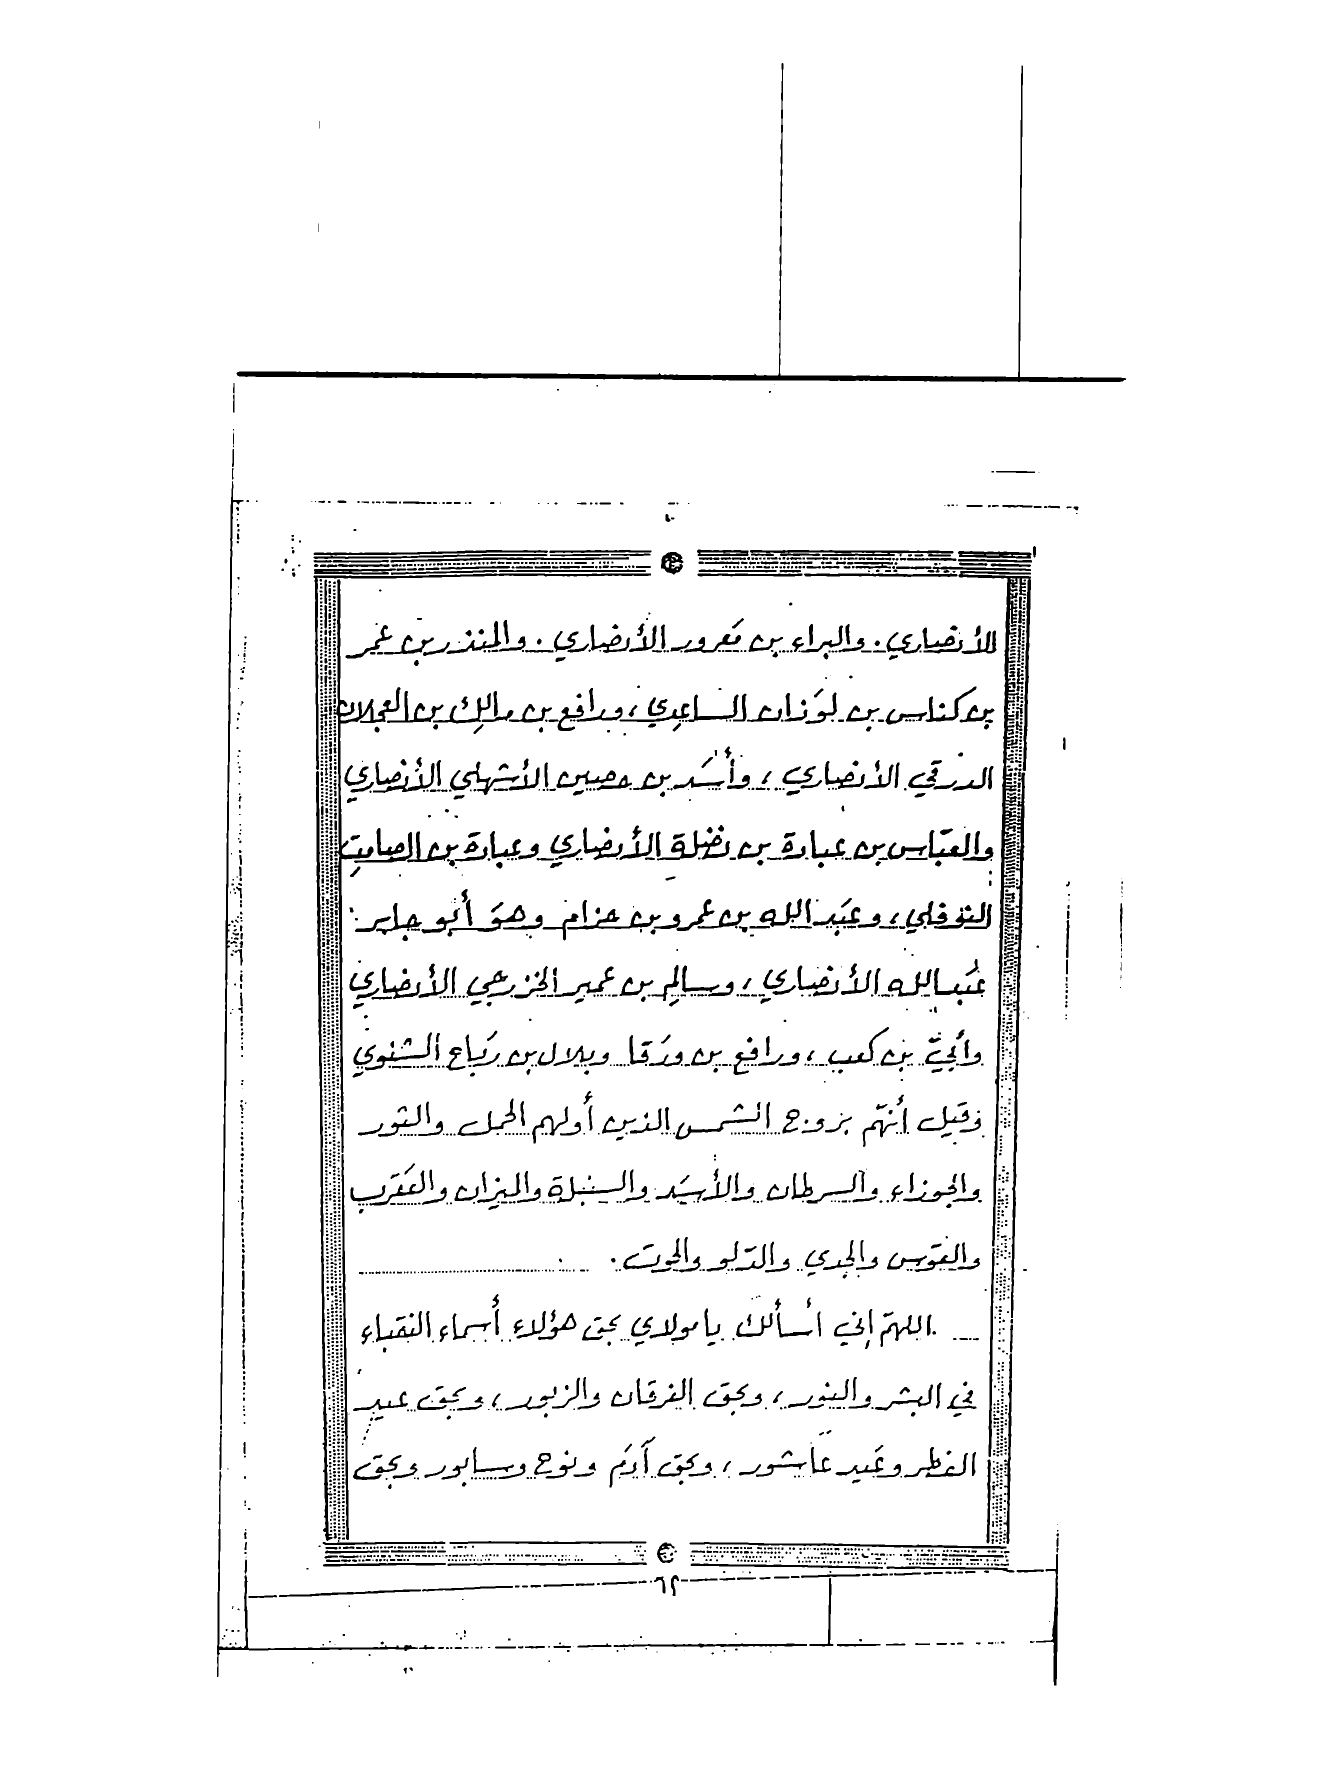 الأنصاري. والبراء بن مَعرور الأنصاري. والمنذر بن عمر
بن كناس بن لوَذان الساعدِي، ورافع بن مالِك بن العجلان
الدرقي الأنصاري، وأسَد بن حصين الأشهلي الأنصاري
والعبّاس بن عبادة بن نضْلة الأنصاري وعبادة بن الصامِت
النوفلي، وعَبد الله بن عمرو بن حزام وهوَ أبو جابر
عَبد الله الأنصاري، وسالِم بن عمير الخزرجي الأنصاري
وأبيّ بن كعب، ورافع بن ورَقا وبلال بن رَباح الشنوي
وَقيل أنهّم بروج الشمس الذين أولهم الحمل والثور
والجوزاء والسرطان والأسَد والسنبلة والميزان والعَقرَب
والقوَس والجدي والدّلو والحوت.
اللهمّ إني أسألك يا مولاي بحق هؤلاء أسماء النقباء
في البشر والنور، وبحق الفرقان والزبور، وبحق عيد
الفطر وعَيد عاشور، وبحق آدَم ونوح وسابور وبحق
٦٢